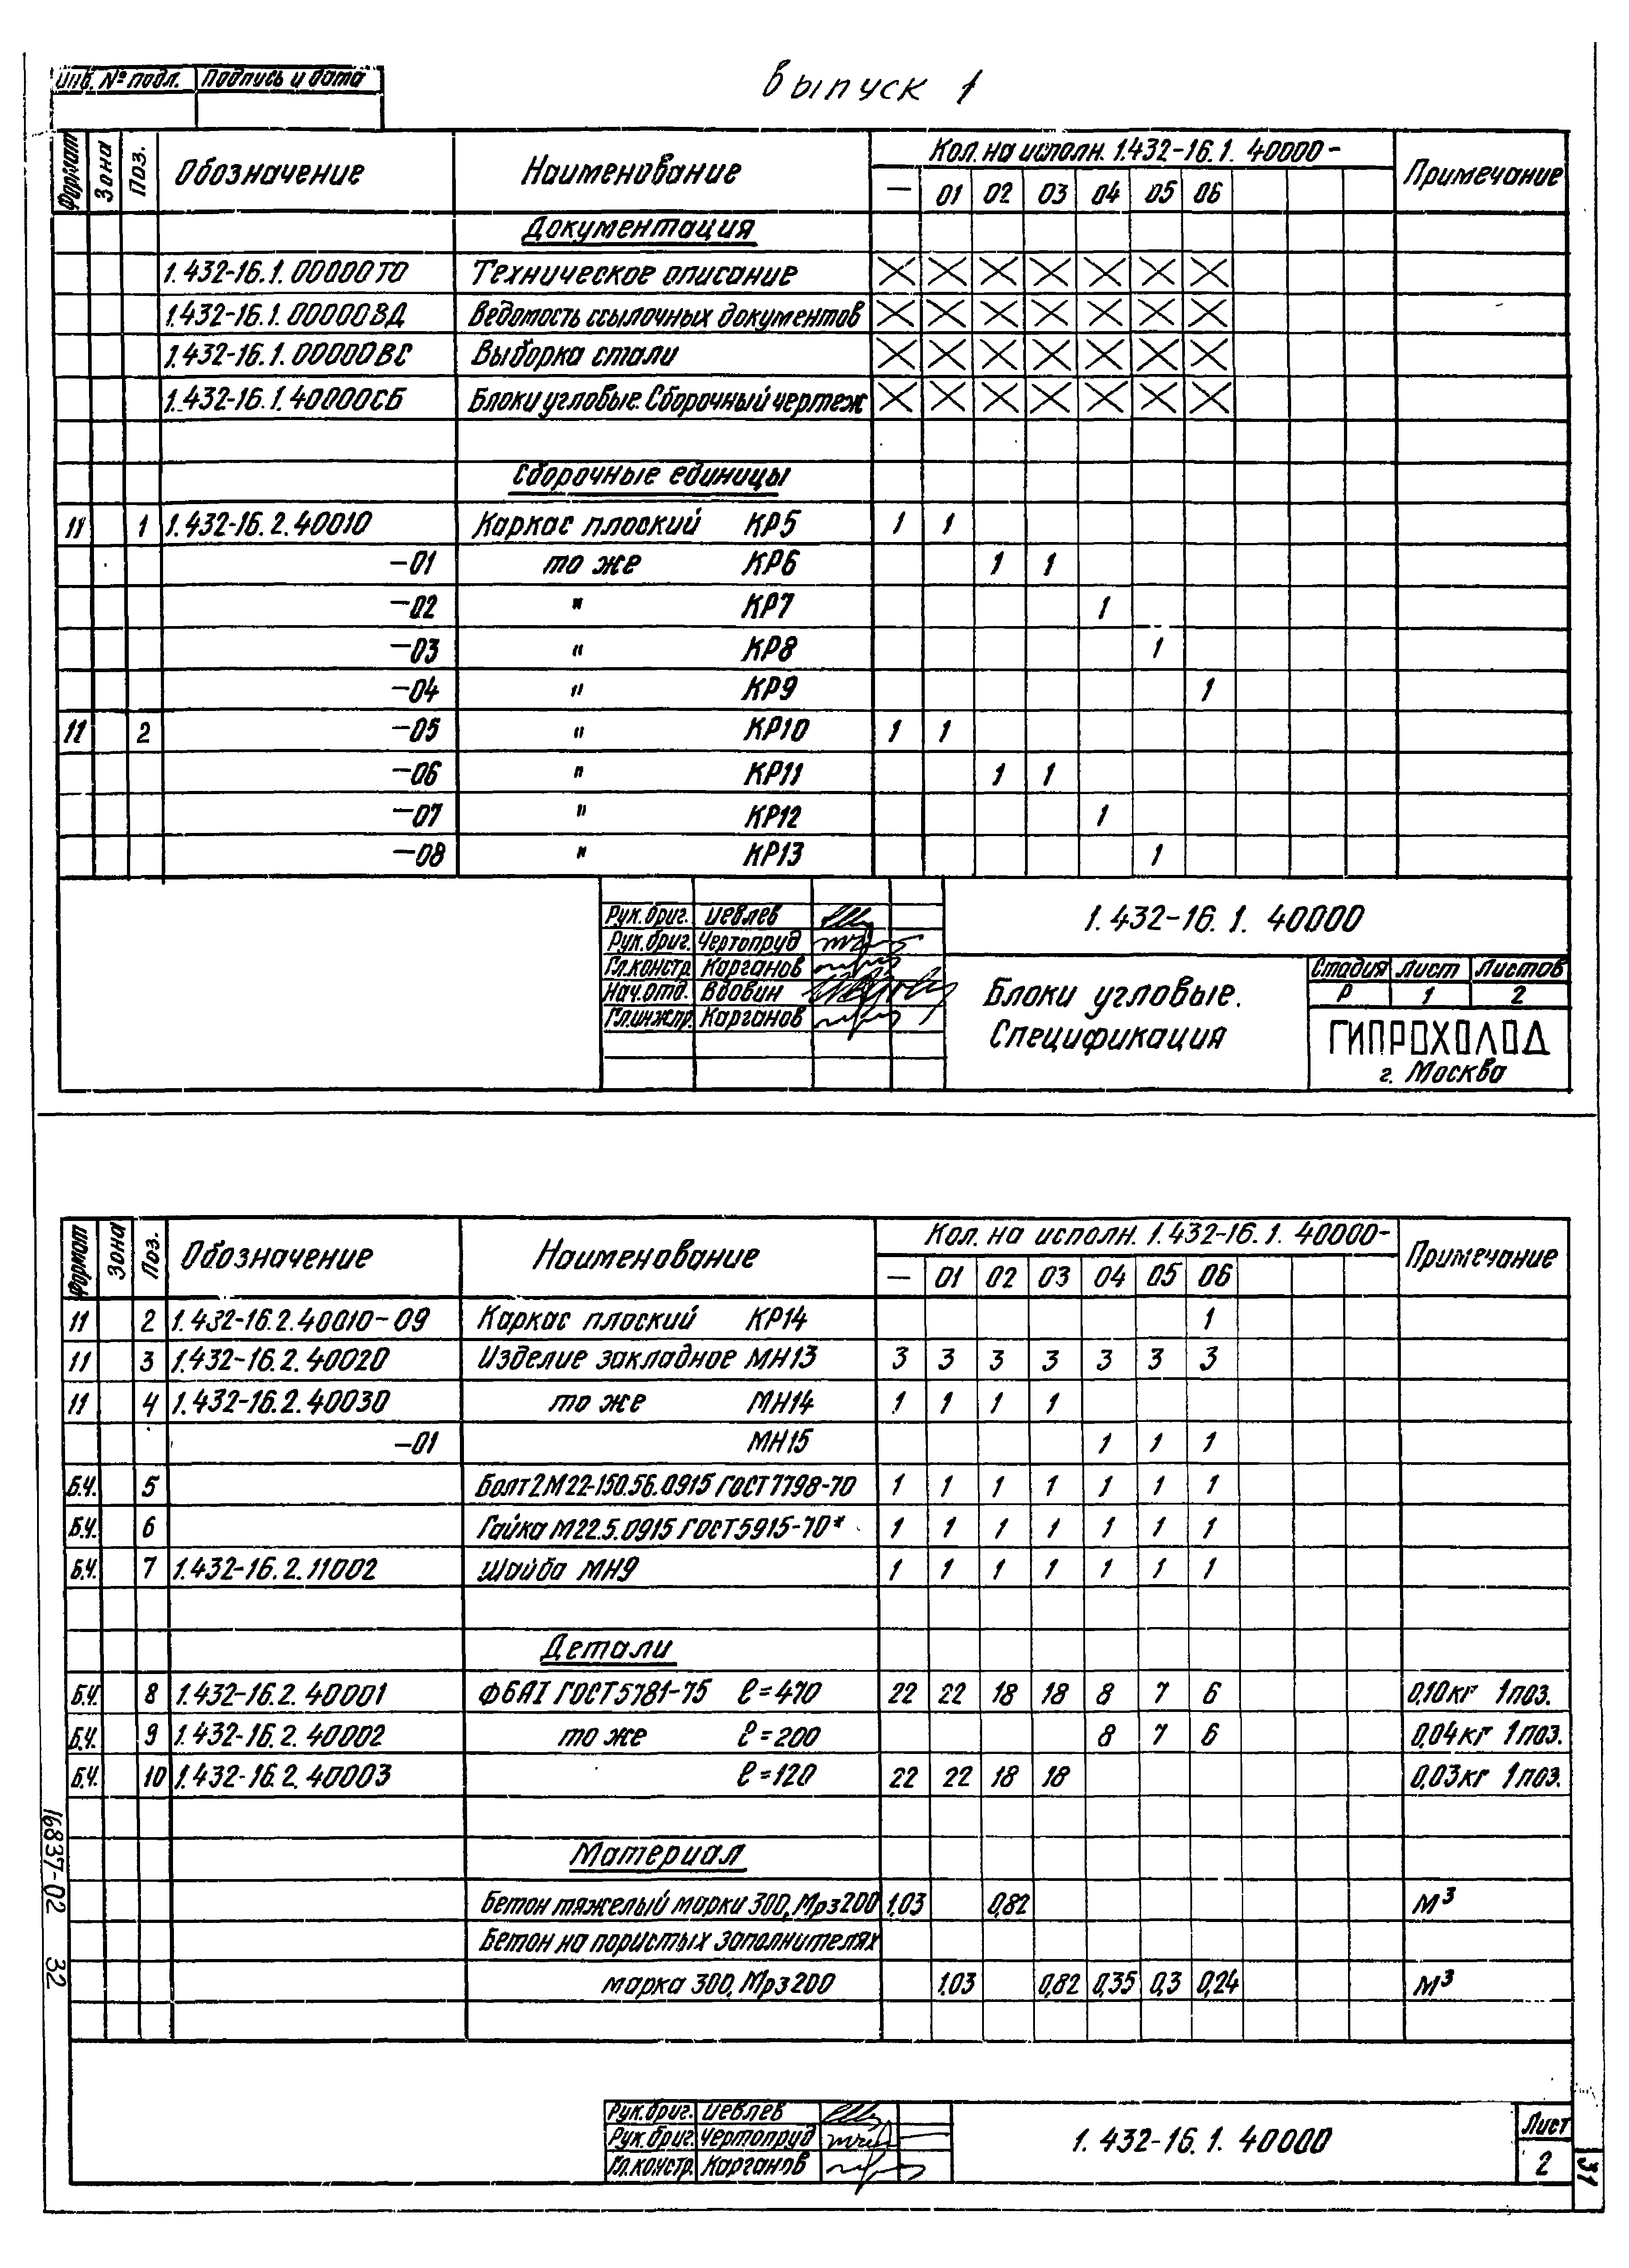 Выпуск 1
Инв. № подл. Подпись и дата
Формат Зона Поз. Обозначение Наименование Кол. на исполн. 1.432-16.1. 40000- Примечание
— 01 02 03 04 05 06
Документация
1.432-16.1.00000ТО Техническое описание
1.432-16.1.00000ВД Ведомость ссылочных документов
1.432-16.1.00000ВС Выборка стали
1.432-16.1.40000СБ Блоки угловые. Сборочный чертеж
Сборочные единицы
11 1 1.432-16.2.40010 Каркас плоский КР5 1 1
-01 то же КР6 1 1
-02 " КР7 1
-03 " КР8 1
-04 " КР9 1
11 2 -05 " КР10 1 1
-06 " КР11 1 1
-07 " КР12 1
-08 " КР13 1
Рук.бриг. Иевлев
Рук.бриг. Чертопруд
Гл.констр. Карганов
Нач.отд. Вдовин
Гл.инж.пр. Карганов
1.432-16.1. 40000
Блоки угловые.
Спецификация
Стадия Лист Листов
Р 1 2
ГИПРОХОЛОД
г. Москва
Формат Зона Поз. Обозначение Наименование Кол. на исполн. 1.432-16.1. 40000- Примечание
— 01 02 03 04 05 06
11 2 1.432-16.2.40010-09 Каркас плоский КР14 1
11 3 1.432-16.2.40020 Изделие закладное МН13 3 3 3 3 3 3 3
11 4 1.432-16.2.40030 то же МН14 1 1 1 1
-01 МН15 1 1 1
Б.Ч. 5 Болт 2М22-150.56.0915 ГОСТ 7798-70 1 1 1 1 1 1 1
Б.Ч. 6 Гайка М22.5.0915 ГОСТ 5915-70* 1 1 1 1 1 1 1
Б.Ч. 7 1.432-16.2.11002 Шайба МН9 1 1 1 1 1 1 1
Детали
Б.Ч. 8 1.432-16.2.40001 Ф6АI ГОСТ 5781-75 ℓ=470 22 22 18 18 8 7 6 0,10кг 1поз.
Б.Ч. 9 1.432-16.2.40002 то же ℓ=200 8 7 6 0,04кг 1поз.
Б.Ч. 10 1.432-16.2.40003 ℓ=120 22 22 18 18 0,03кг 1поз.
Материал
Бетон тяжелый марки 300, Мрз200 1.03 0,82 М³
Бетон на пористых заполнителях
марка 300, Мрз200 1.03 0,82 0,35 0,3 0,24 М³
Рук.бриг. Иевлев
Рук.бриг. Чертопруд
Гл.констр. Карганов
1.432-16.1. 40000
Лист
2
16837-02 32
31